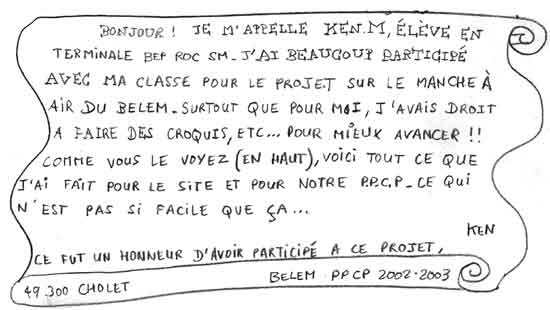 BONJOUR ! JE M'APPELLE KEN.M, ÉLÈVE EN
TERMINALE BEP ROC SM - J'AI BEAUCOUP PARTICIPÉ
AVEC MA CLASSE POUR LE PROJET SUR LE MANCHE À
AIR DU BELEM - SURTOUT QUE POUR MOI, J'AVAIS DROIT
A FAIRE DES CROQUIS, ETC... POUR MIEUX AVANCER !!
COMME VOUS LE VOYEZ (EN HAUT), VOICI TOUT CE QUE
J'AI FAIT POUR LE SITE ET POUR NOTRE P.P.C.P - CE QUI
N'EST PAS SI FACILE QUE ÇA...
KEN
CE FUT UN HONNEUR D'AVOIR PARTICIPÉ A CE PROJET,
BELEM PPCP 2002-2003
49.300 CHOLET